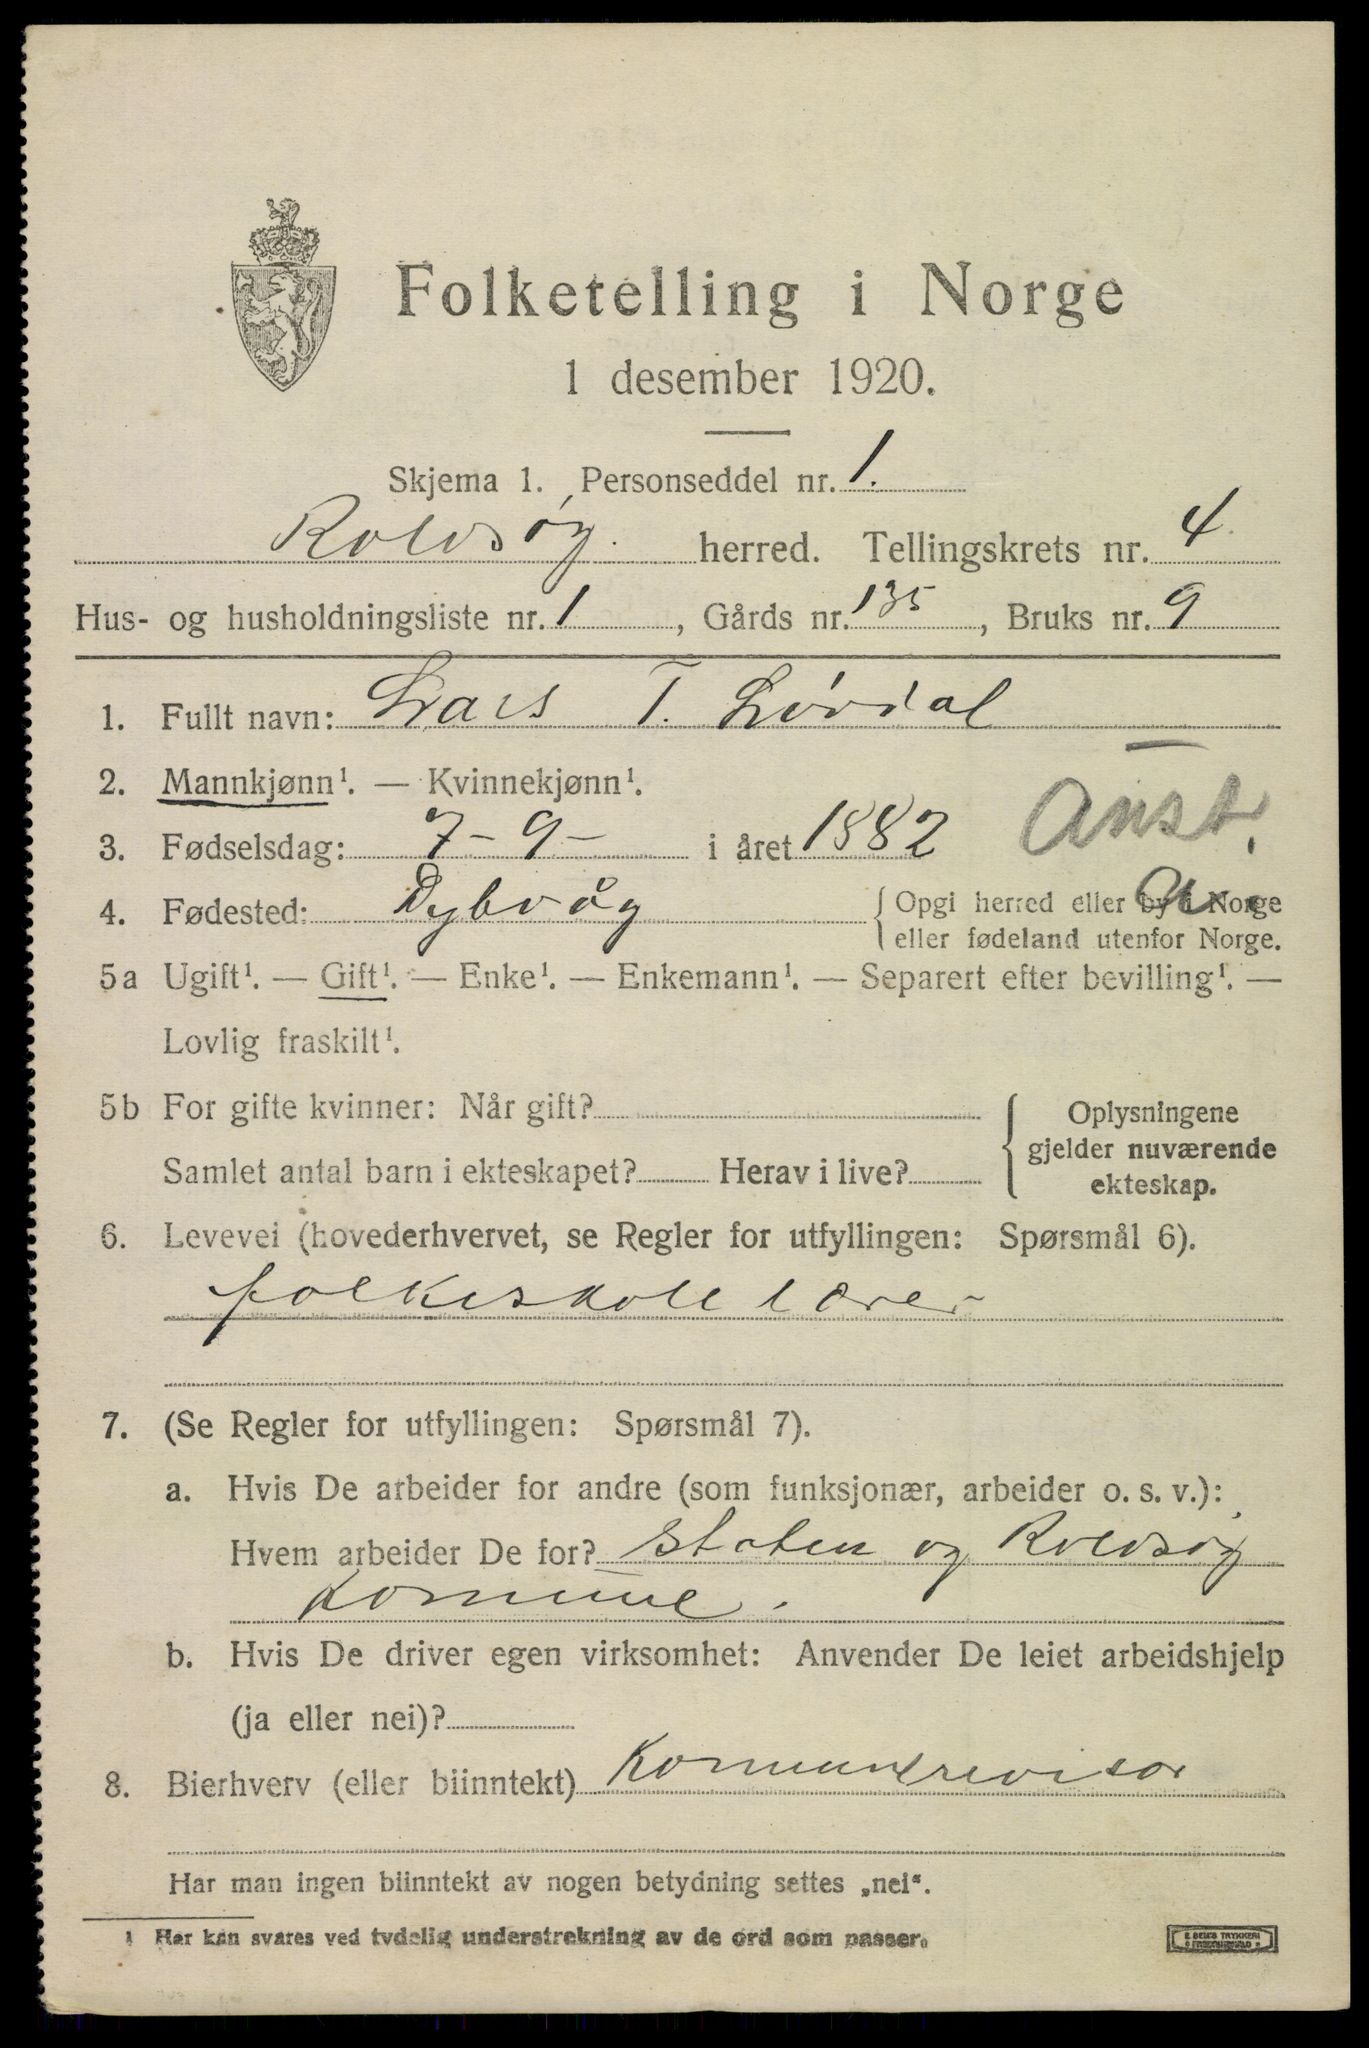 Folketelling i Norge
1 desember 1920.
Skjema 1. Personseddel nr. 1.
Rolvsøy herred. Tellingskrets nr. 4
Hus- og husholdningsliste nr. 1, Gårds nr. 135, Bruks nr. 9
1. Fullt navn: Lars T. Lövdal
2. Mannkjønn¹. — Kvinnekjønn¹.
3. Fødselsdag: 7-9- i året 1882
Anst.
4. Fødested: Dybvåg {Opgi herred eller by i Norge
eller fødeland utenfor Norge.
5a Ugift¹. — Gift¹. — Enke¹. — Enkemann¹. — Separert efter bevilling¹. —
Lovlig fraskilt¹.
5b For gifte kvinner: Når gift?
Samlet antal barn i ekteskapet? Herav i live?
{Oplysningene
gjelder nuværende
ekteskap.
6. Levevei (hovederhvervet, se Regler for utfyllingen: Spørsmål 6).
folkeskolelærer
7. (Se Regler for utfyllingen: Spørsmål 7).
a. Hvis De arbeider for andre (som funksjonær, arbeider o. s. v.):
Hvem arbeider De for? Staten og Rolvsøy
Kommune.
b. Hvis De driver egen virksomhet: Anvender De leiet arbeidshjelp
(ja eller nei)?
8. Bierhverv (eller biinntekt) Kommunerevisor
Har man ingen biinntekt av nogen betydning settes „nei“.
1 Her kan svares ved tydelig understrekning av de ord som passer.